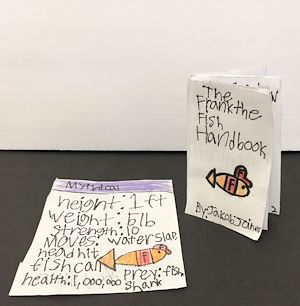 The
Frank the
Fish
Handbook
F
By: Jakob Joiner
2
Mythical
height: 1 ft
weight: 5 lb
strength: 10
moves: water slap,
head hit
fish can
F
prey: fish
shark
health: 1,000,000